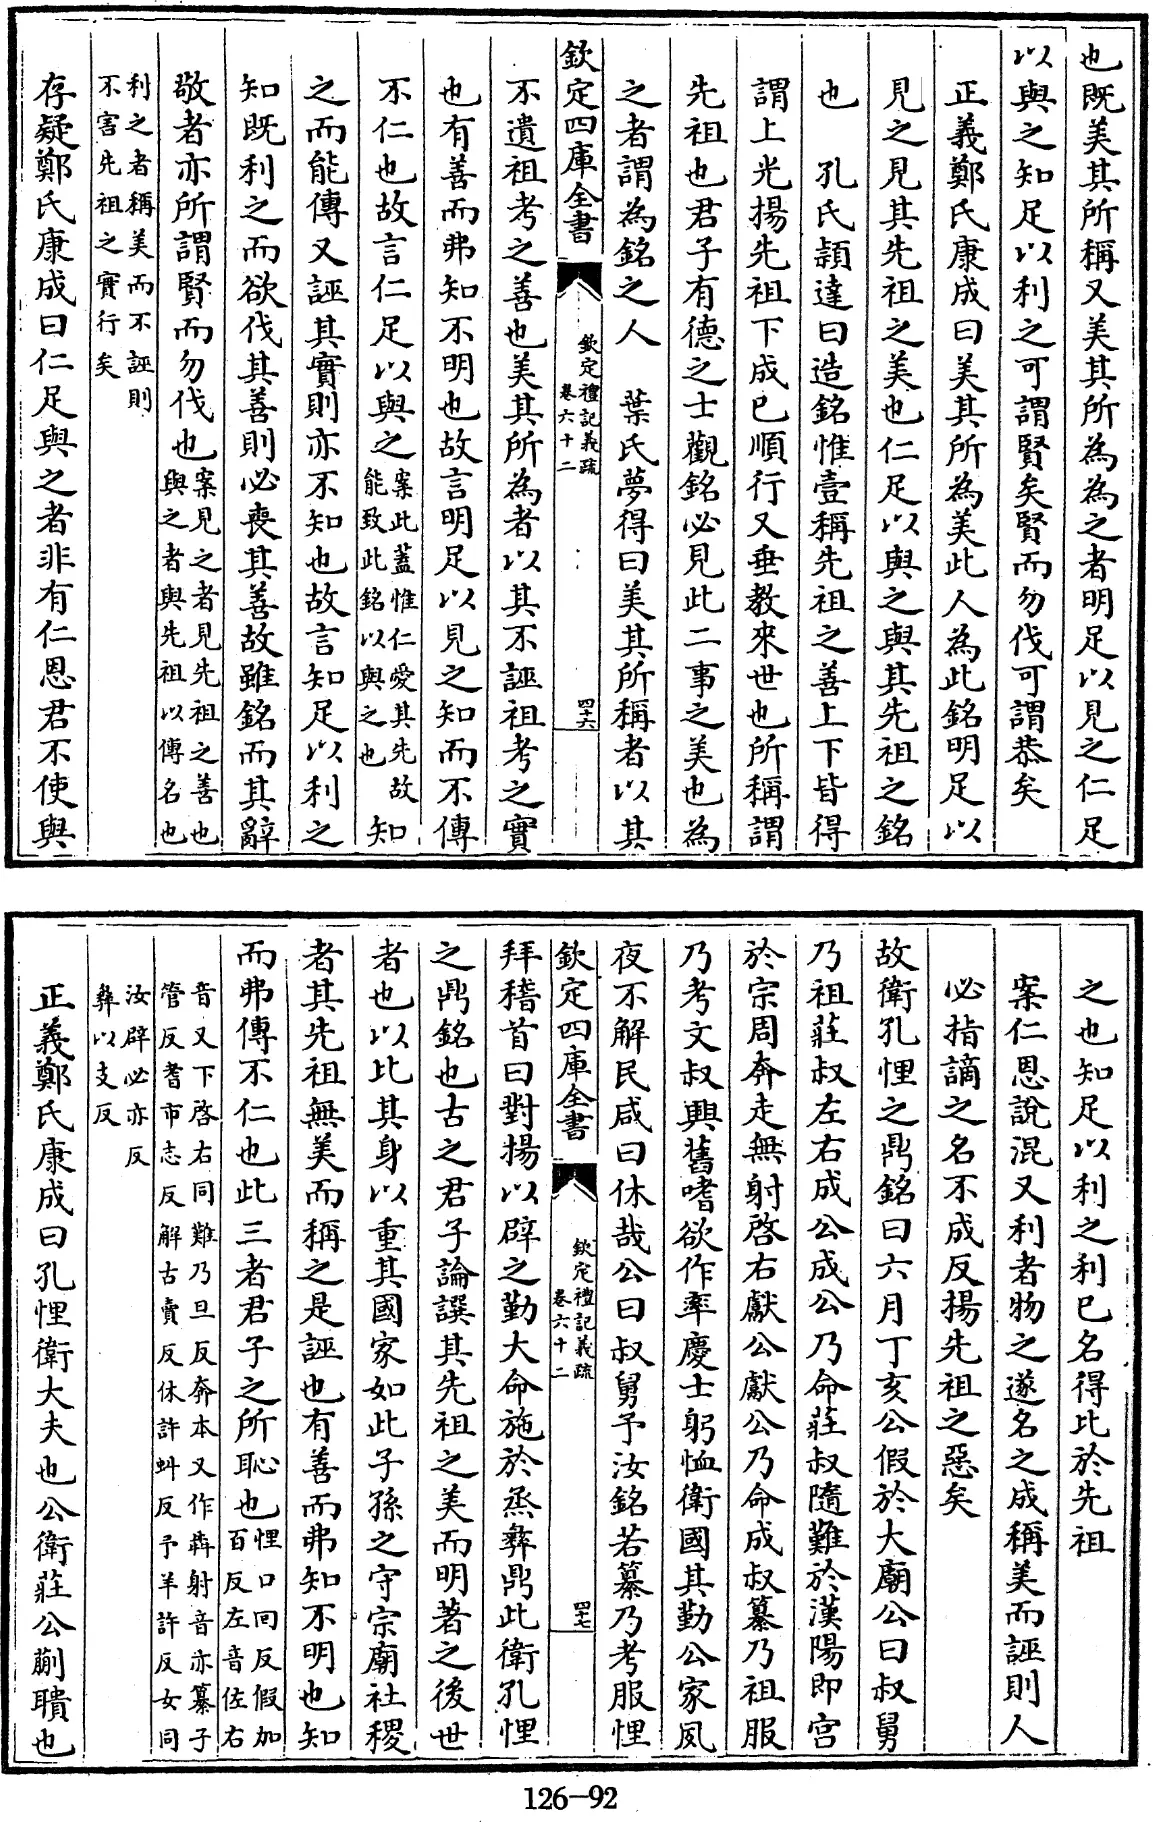 也既美其所稱又美其所為為之者明足以見之仁足
以與之知足以利之可謂賢矣賢而勿伐可謂恭矣
正義鄭氏康成曰美其所為美此人為此銘明足以
見之見其先祖之美也仁足以與之與其先祖之銘
也 孔氏穎達曰造銘惟壹稱先祖之善上下皆得
謂上光揚先祖下成已順行又垂教來世也所稱謂
先祖也君子有德之士觀銘必見此二事之美也為
之者謂為銘之人 葉氏夢得曰美其所稱者以其
欽定四庫全書
欽定禮記義疏
卷六十二
四十六
不遺祖考之善也美其所為者以其不誣祖考之實
也有善而弗知不明也故言明足以見之知而不傳
不仁也故言仁足以與之案此蓋惟仁愛其先故
能致此銘以與之也知
之而能傳又誣其實則亦不知也故言知足以利之
知既利之而欲伐其善則必喪其善故雖銘而其辭
敬者亦所謂賢而勿伐也案見之者見先祖之善也
與之者與先祖以傳名也
利之者稱美而不誣則
不害先祖之實行矣
存疑鄭氏康成曰仁足與之者非有仁恩君不使與
之也知足以利之利已名得比於先祖
案仁恩說混又利者物之遂名之成稱美而誣則人
必指謫之名不成反揚先祖之惡矣
故衛孔悝之鼎銘曰六月丁亥公假於大廟公曰叔舅
乃祖莊叔左右成公成公乃命莊叔隨難於漢陽即宮
於宗周奔走無射啓右獻公獻公乃命成叔纂乃祖服
乃考文叔興舊嗜欲作率慶士躬恤衛國其勤公家夙
夜不解民咸曰休哉公曰叔舅予汝銘若纂乃考服悝
欽定四庫全書
欽定禮記義疏
卷六十二
四十七
拜稽首曰對揚以辟之勤大命施於烝彝鼎此衛孔悝
之鼎銘也古之君子論譔其先祖之美而明著之後世
者也以比其身以重其國家如此子孫之守宗廟社稷
者其先祖無美而稱之是誣也有善而弗知不明也知
而弗傳不仁也此三者君子之所恥也悝口回反假加
百反左音佐右
音又下啓右同難乃旦反奔本又作犇射音亦纂子
管反耆市志反解古賣反休許蚪反予羊許反女同
汝辟必亦反
彝以支反
正義鄭氏康成曰孔悝衛大夫也公衛莊公蒯聵也
126-92